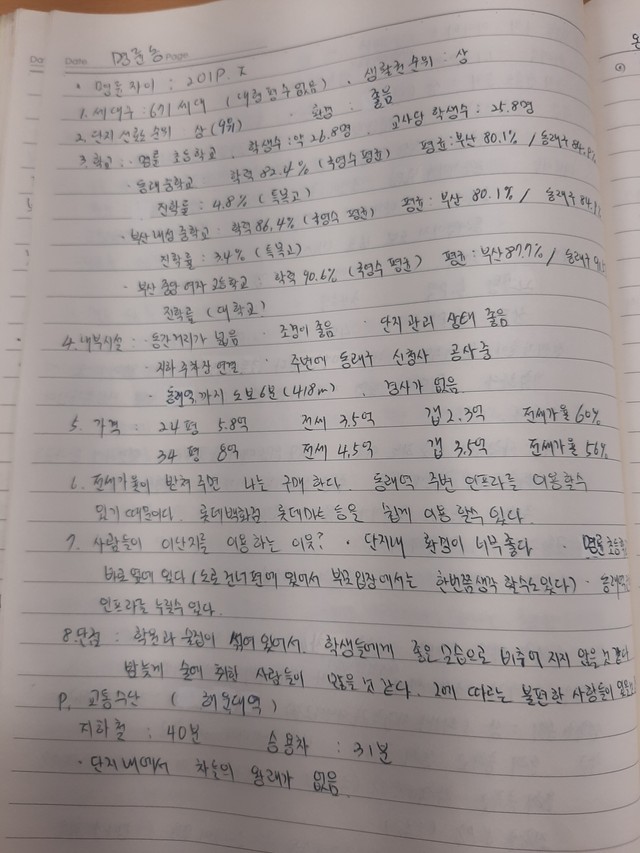 Date 명륜동 Page
· 명륜자이 : 2019. X
1. 세대수 : 671 세대 (대형 평수 없음) · 생활권 순위 : 상
2. 단지 선호 순위 상 (9위) · 환경 : 좋음
3. 학교 : · 명륜 초등학교 · 학생수 : 약 26.8명 · 교사당 학생수 : 25.8명
· 동래중학교 학력 82.4% (국영수 평균) 평균 : 부산 80.1% / 동래구
진학률 : 4.8% (특목고)
· 부산 내성 중학교 : 학력 86.4% (국영수 평균) 평균 : 부산 80.1% / 동래구 84.1
진학률 : 3.4% (특목고)
· 부산 중앙 여자 고등학교 : 학력 90.6% (국영수 평균) 평균 : 부산 87.7% / 동래구
진학률 (대학교)
4. 내부시설 : · 동간거리가 넓음 · 조경이 좋음 · 단지 관리 상태 좋음
· 지하 주차장 연결 · 주변에 동래구 신청사 공사중
· 동래역까지 도보 6분 (418m) · 경사가 없음
5. 가격 : 24평 5.8억 전세 3.5억 갭 2.3억 전세가율 60%
34평 8억 전세 4.5억 갭 3.5억 전세가율 56%
6. 전세가율이 받혀주면 나는 구매 한다. 동래역 주변 인프라를 이용할수
있기 때문이다. 롯데백화점 롯데마트 등을 쉽게 이용 할수 있다.
7. 사람들이 이단지를 이용하는 이윳? · 단지내 환경이 너무 좋다 · 명륜초등
바로 옆에 있다 (도로건너편에 있어서 부모입장에서는 한번쯤생각 할수도있다) · 동래역
인프라를 누릴수 있다.
8. 단점 : 학원과 술집이 섞여 있어서 학생들에게 좋은 모습으로 비추어 지지 않을것 같다
밤늦게 술에 취한 사람들이 많을 것 같다. 그에 따르는 불편한 사람들이
9. 교통수단 ( 해운대역 )
지하철 : 40분 승용차 : 31분
· 단지내에서 차들의 왕래가 없음